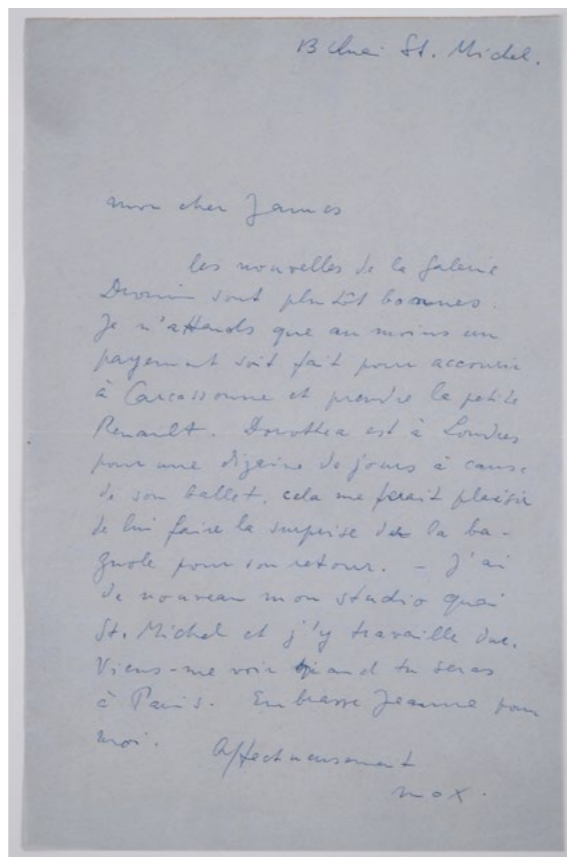 13 Quai St. Michel.
mon cher James
les nouvelles de la galerie
Drouin sont plutôt bonnes.
Je n'attends que au moins un
payement soit fait pour accourir
à Carcassonne et prendre la petite
Renault. Dorothea est à Londres
pour une dizaine de jours à cause
de son ballet, cela me ferait plaisir
de lui faire la surprise de la ba-
gnole pour son retour. - J'ai
de nouveau mon studio quai
St. Michel et j'y travaille dur.
Viens-me voir quand tu seras
à Paris. Embrasse Jeanne pour
moi. Affectueusement
max.